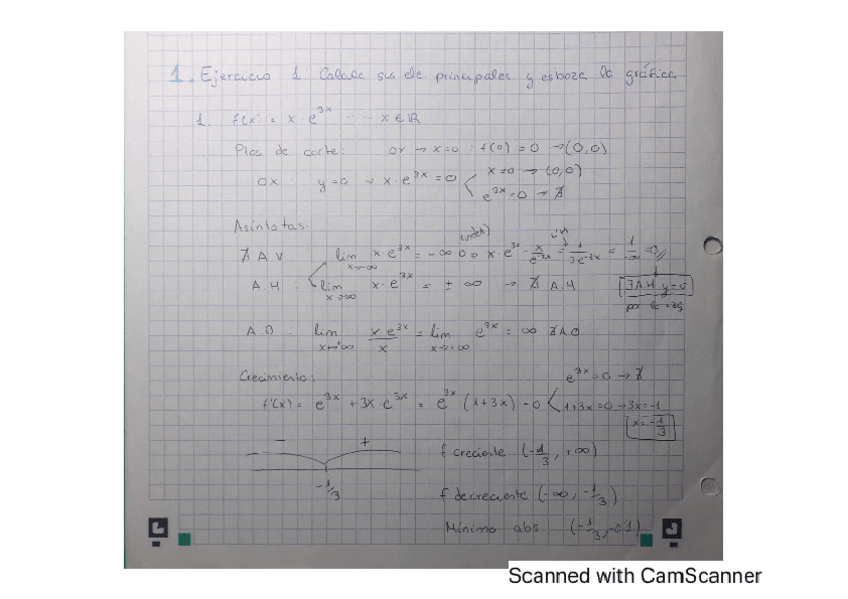 1. Ejercicio 1 Calcula sus ele principales y esboza la gráfica
1. f(x) = x · e^3x ... x ∈ ℝ
Ptos de corte: OY → x=0 : f(0) = 0 → (0,0)
OX : y=0 → x·e^3x = 0 x=0 → (0,0)
e^3x=0 → ∄
Asíntotas:
∄ A V lim x→-∞ x·e^3x = -∞·0 = x·e^3x = x/e^-3x = 1/-3e^-3x = 1/-∞ = 0//
A.H : lim x→∞ x·e^3x = ± ∞ → ∄ A.H ∃A.H y=0
por la izq
A.O : lim x→+∞ x·e^3x/x = lim x→+∞ e^3x = ∞ ∄ A O
Crecimiento: e^3x = 0 → ∄
f'(x) = e^3x + 3x·e^3x = e^3x (1+3x) = 0 1+3x=0 → 3x=-1
x=-1/3
- + f creciente (-1/3, +∞)
-1/3
f decreciente (-∞, -1/3)
Mínimo abs (-1/3, -0'1)
Scanned with CamScanner